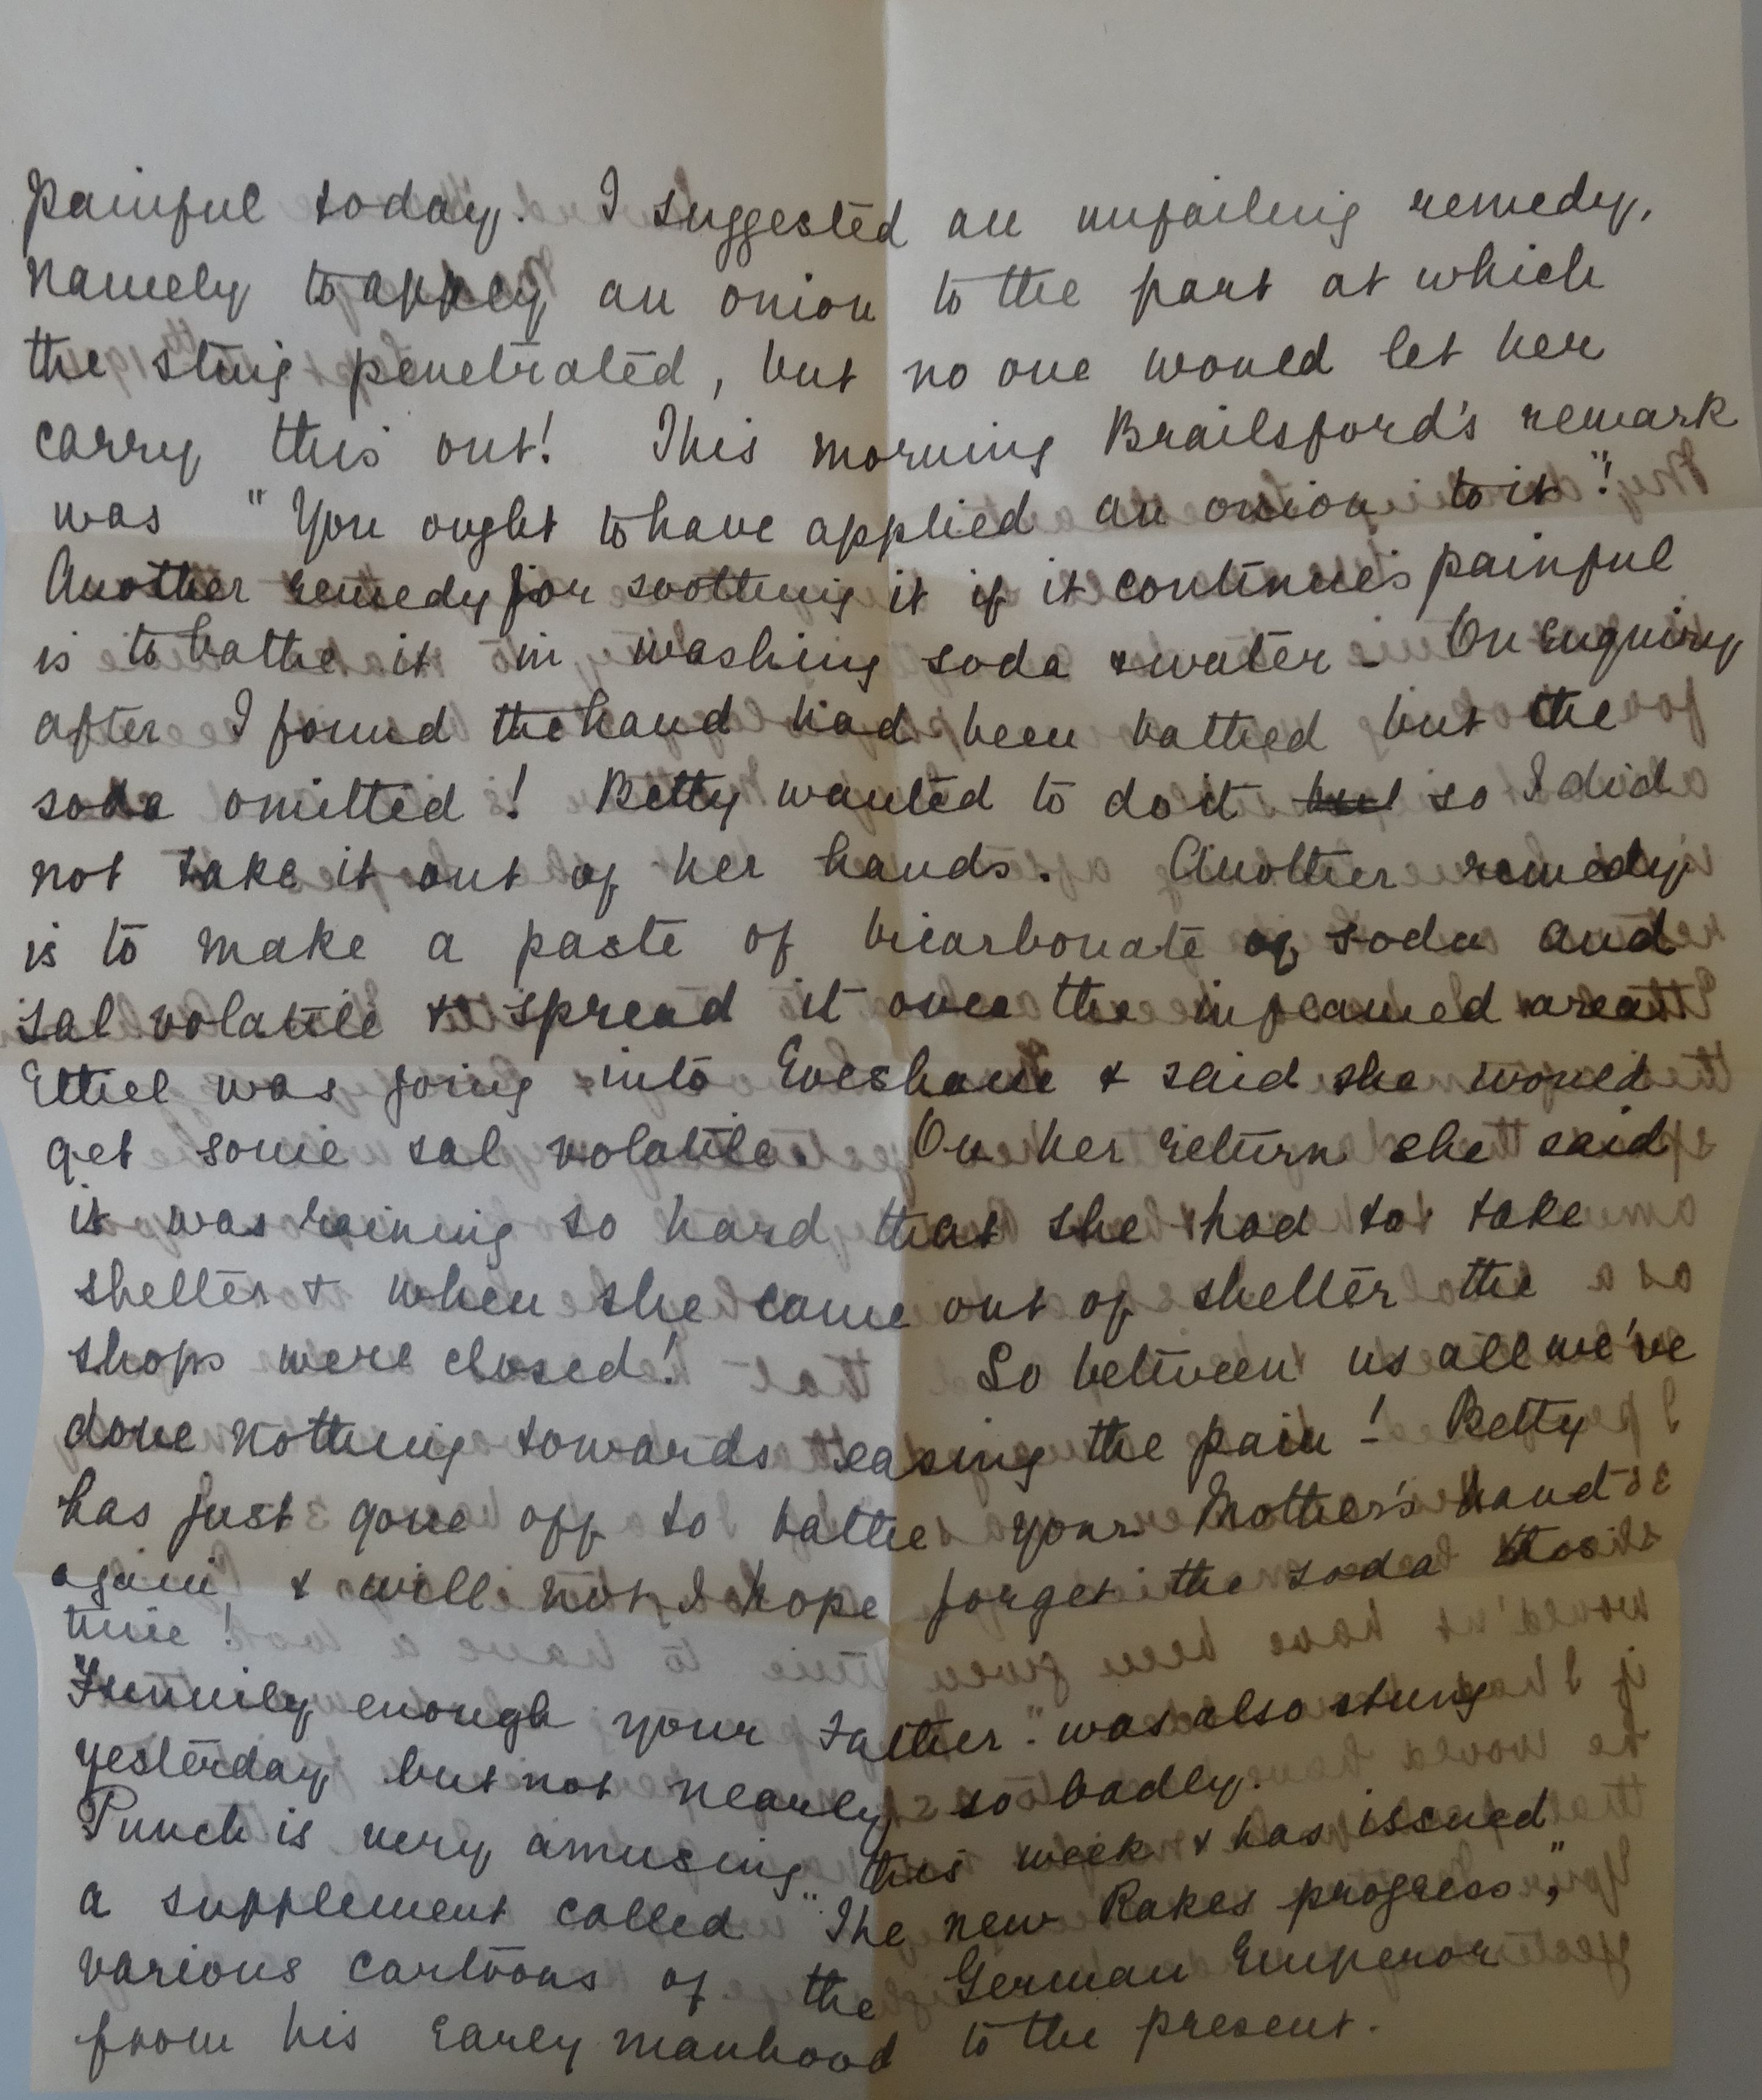 painful today. I suggested an unfailing remedy,
namely to apply an onion to the part at which
the sting penetrated, but no one would let her
carry this out! This morning Brailsford's remark
was "You ought to have applied an onion to it"!
Another remedy for soothing it if it continues painful
is to bathe it in washing soda & water - On enquiry
after I found the hand had been bathed but the
soda omitted! Betty wanted to do it but so I did
not take it out of her hands. Another remedy
is to make a paste of bicarbonate of soda and
sal volatile & spread it over the inflamed area
Ethel was going into Evesham & said she would
get some sal volatile. On her return she said
it was raining so hard that she had to take
shelter & when she came out of shelter the
shops were closed! So between us all we've
done nothing towards easing the pain! Betty
has just gone off to bathe your Mother's hand
again & will not I hope forget the soda this
time!
Funnily enough your Father was also stung
yesterday, but not nearly so badly.
Punch is very amusing this week & has issued
a supplement called "The new Rakes progress",
various cartoons of the German Emperor
from his early manhood to the present.